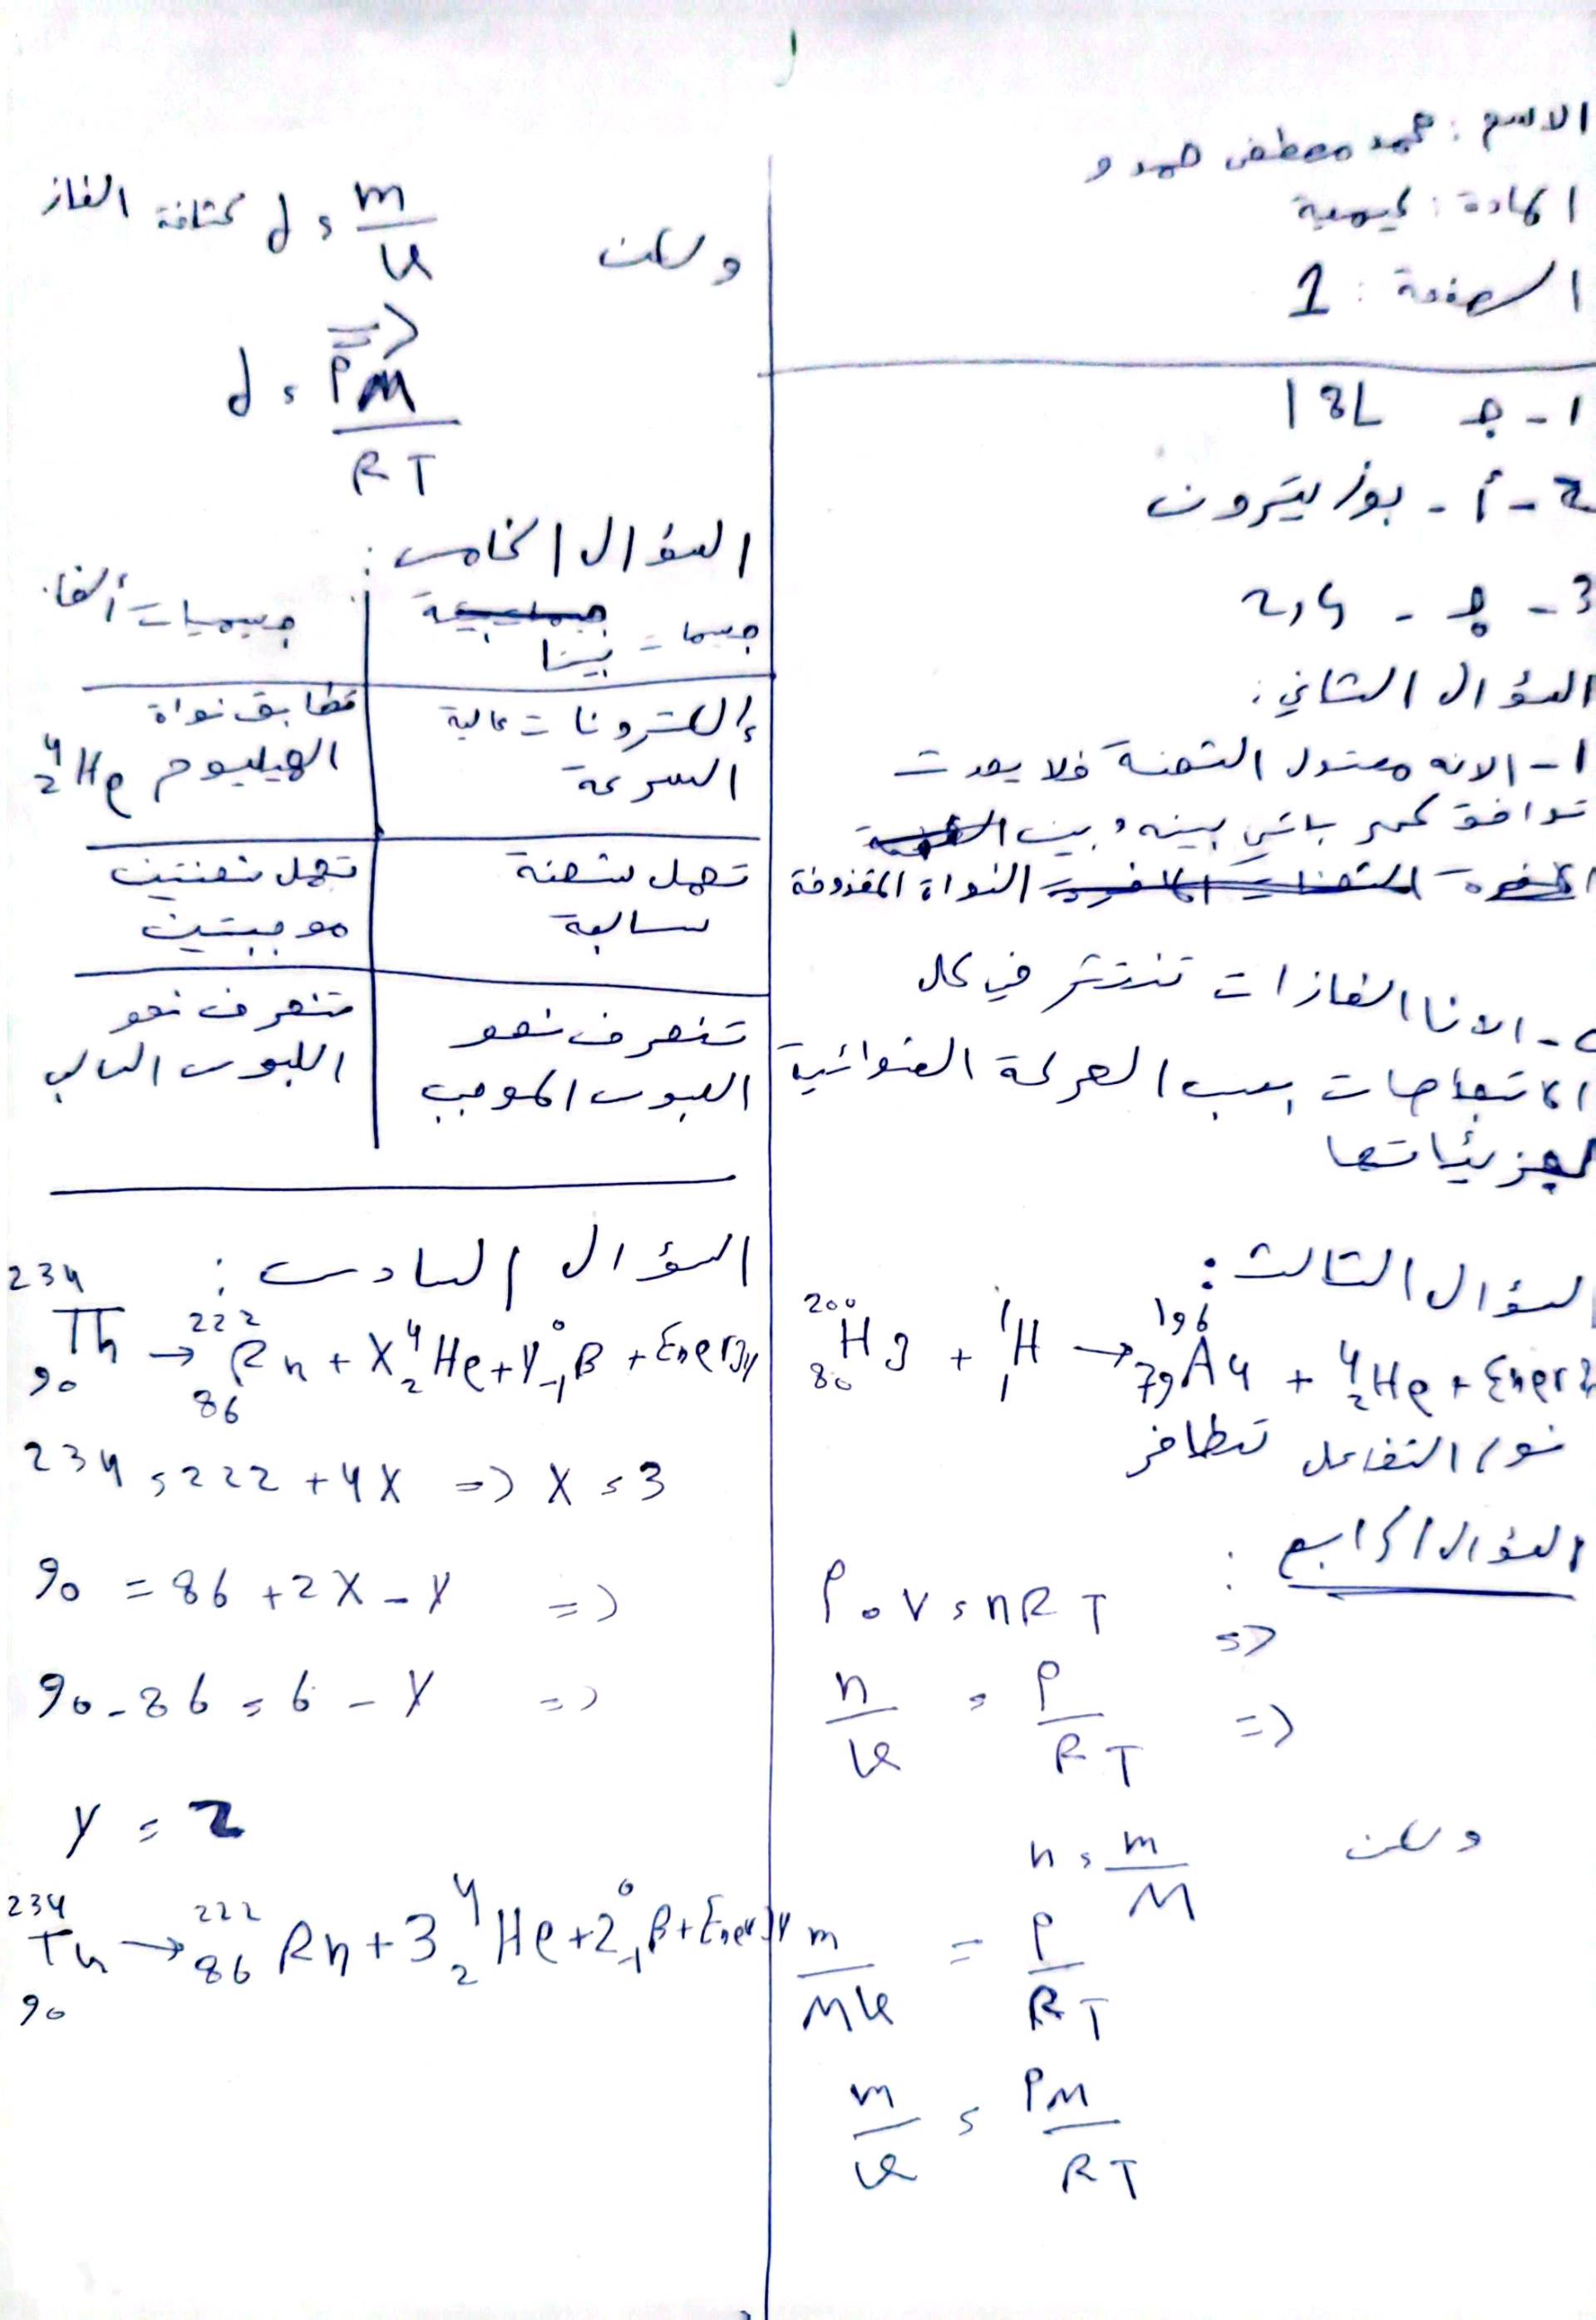 الاسم : محمد مصطفى حمدو
المادة : كيمية
الصفحة : 1
1 - ج 18L
2 - أ - بوزيترون
3 - ج - 2,4
السؤال الثاني :
1 - الانه معتدل الشحنة فلا يحدث
توافق كهر بائي بينه وبين
النواة المقذوفة
2 - الانا الغازات تنتشر في كل
الاتجاهات بسبب الحركة العشوائية
لجزيئاتها
السؤال الثالث :
²⁰⁰₈₀Hg + ¹₁H → ¹⁹⁶₇₉Au + ⁴₂He + Energy
نوع التفاعل تطافر
السؤال الرابع :
P . V = nRT =>
n/V = P/RT =>
ولكن n = m/M
m/MV = P/RT
m/V = PM/RT
ولكن d = m/V كثافة الغاز
=>
d = PM/RT
السؤال الخامس :
جسيمات بيتا جسيميات ألفا
إلكترونات عالية تطابق نواة
السرعة الهيليوم ⁴₂He
تحمل شحنة تحمل شحنتين
سالبة موجبتين
تنحرف نحو تنحرف نحو
اللبوس الموجب اللبوس السالب
السؤال السادس :
²³⁴₉₀Th → ²²²₈₆Rn + X⁴₂He + Y⁰₋₁B + Energy
234 = 222 + 4X => X = 3
90 = 86 + 2X - Y =>
90 - 86 = 6 - Y =>
Y = 2
²³⁴₉₀Th → ²²²₈₆Rn + 3⁴₂He + 2⁰₋₁B + Energy